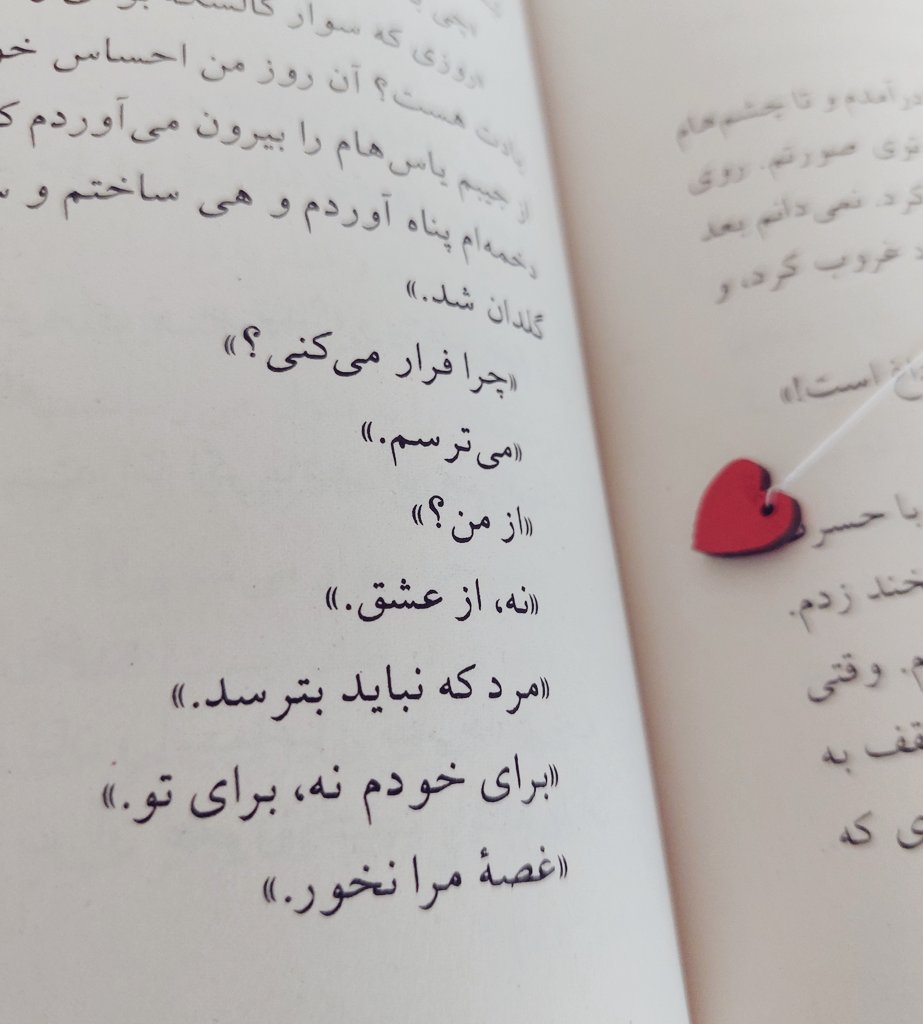 «چی
«روزی که سوار کالسکه
یادت هست؟ آن روز من احساس
از جیبم یاس‌هام را بیرون می‌آوردم
زخمه‌ام پناه آوردم و هی ساختم و
گلدان شد.»
«چرا فرار می‌کنی؟»
«می‌ترسم.»
«از من؟»
«نه، از عشق.»
«مرد که نباید بترسد.»
«برای خودم نه، برای تو.»
«غصهٔ مرا نخور.»
و تا چشم‌هام
توی صورتم. روی
نمی‌دانم بعد
غروب کرد، و
است!»
با حسرت
زدم.
وقتی
به
که